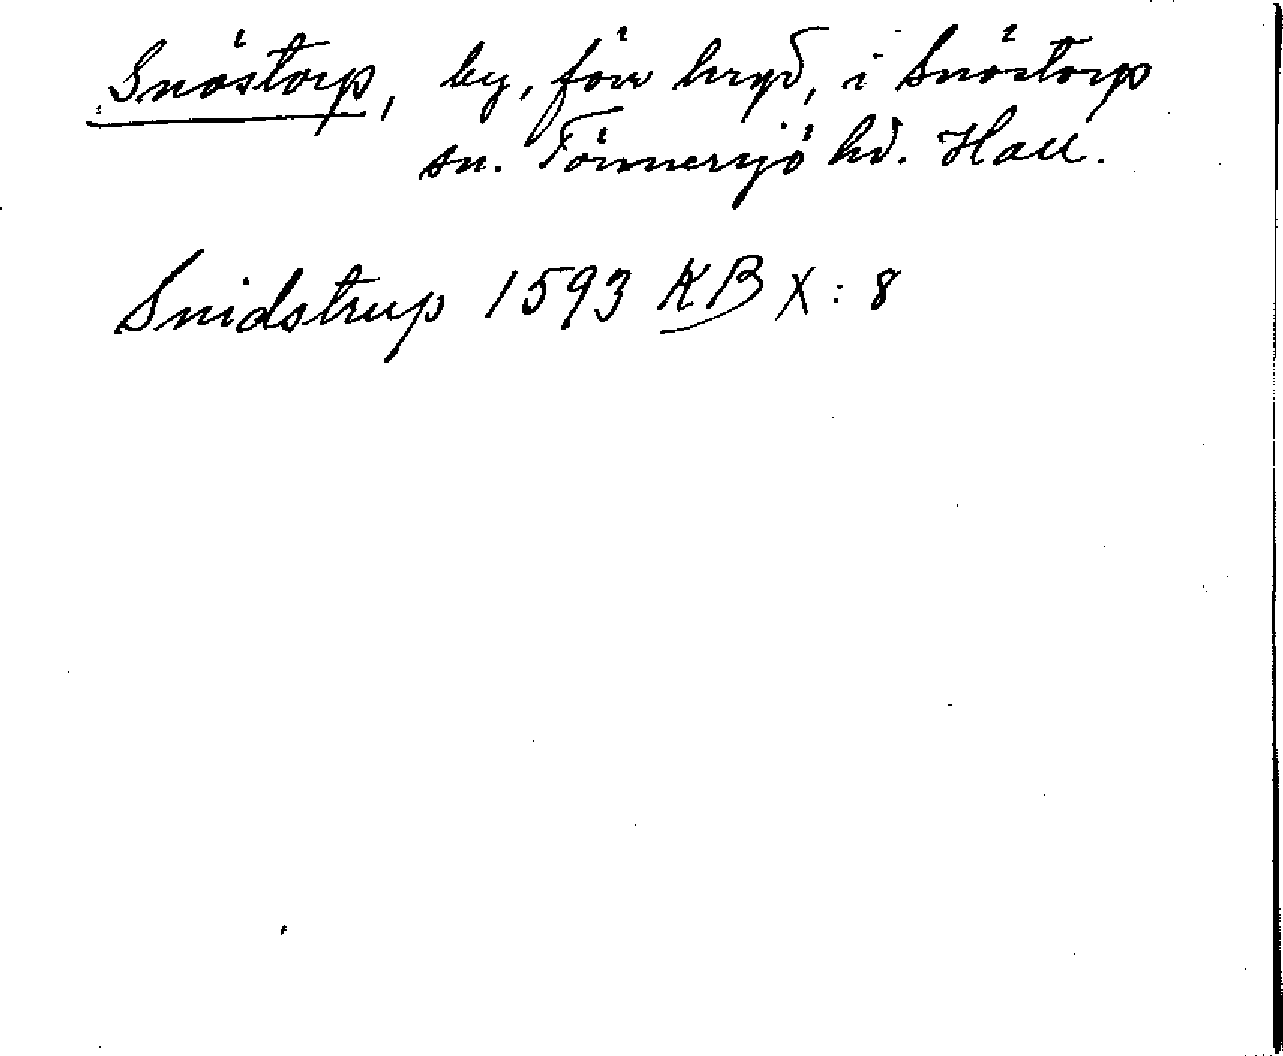 Snöstorp, by, förr hryd, i Snöstorp
sn. Tönnersjö hd. Hall.
Snidstrup 1593 KB X: 8